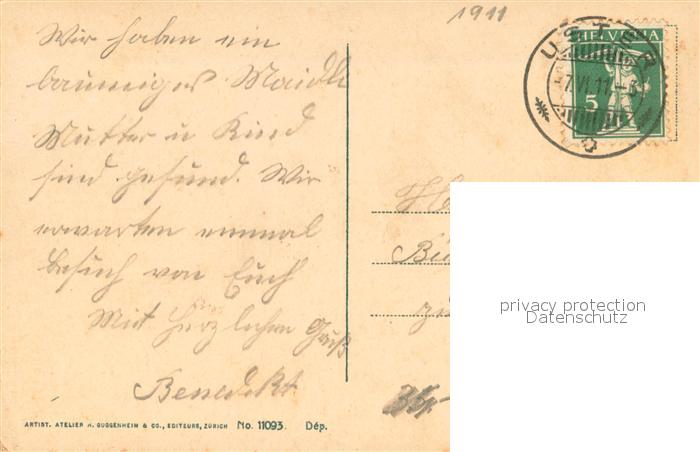 1911
Wir haben ein
baumiges Maidli
Mutter u Kind
sind gesund. Wir
erwarten einmal
besuch von Euch
Mit herzlichen Gruß
Benedikt
USTER
7.VI.11
HELVETIA
5
privacy protection
Datenschutz
ARTIST. ATELIER H. GUGGENHEIM & CO., EDITEURS, ZÜRICH No. 11093. Dép.